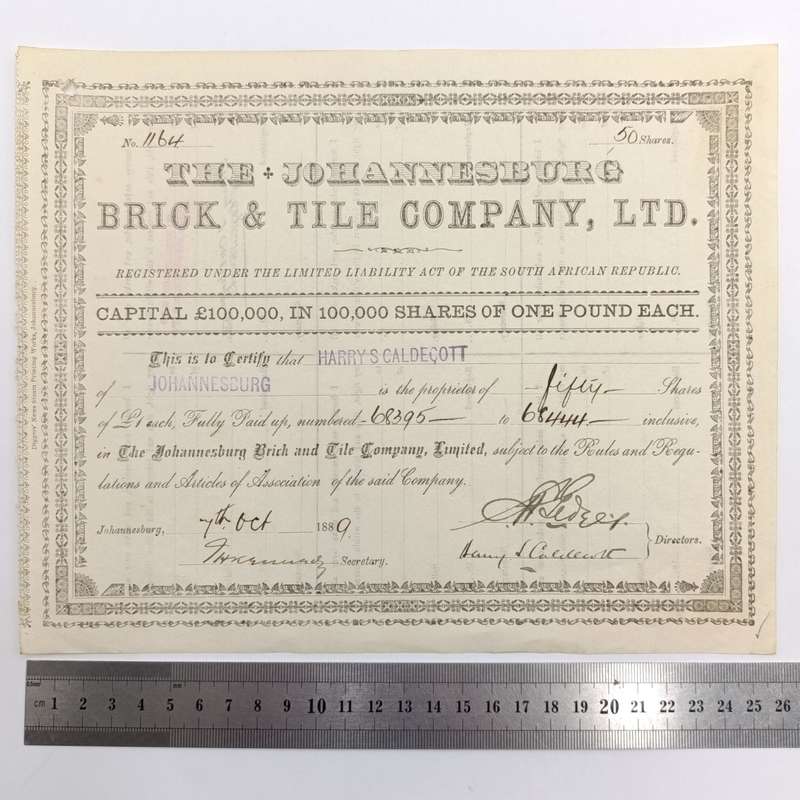 No. 1164 50 Shares.
THE JOHANNESBURG
BRICK & TILE COMPANY, LTD.
REGISTERED UNDER THE LIMITED LIABILITY ACT OF THE SOUTH AFRICAN REPUBLIC.
CAPITAL £100,000, IN 100,000 SHARES OF ONE POUND EACH.
This is to Certify that HARRY S CALDECOTT
of JOHANNESBURG is the proprietor of fifty Shares
of £1 each, Fully Paid up, numbered 68395 to 68444 inclusive,
in The Johannesburg Brick and Tile Company, Limited, subject to the Rules and Regu-
lations and Articles of Association of the said Company.
Johannesburg, 7th Oct 1889.
Secretary.
Harry S Caldecott
Directors.
Diggers' News Steam Printing Works, Johannesburg.
0.5mm mm
cm 1 2 3 4 5 6 7 8 9 10 11 12 13 14 15 16 17 18 19 20 21 22 23 24 25 26